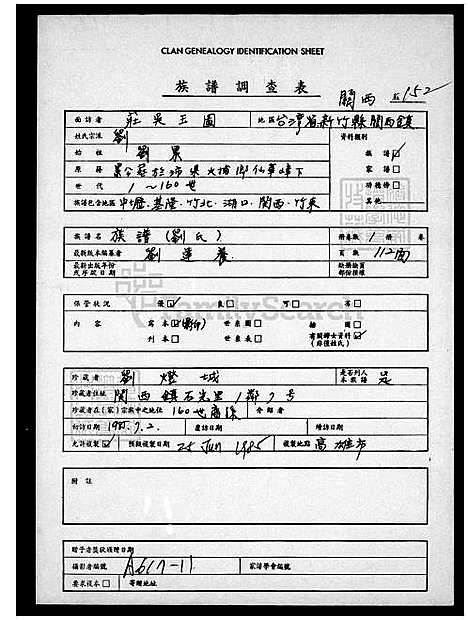 CLAN GENEALOGY IDENTIFICATION SHEET
族譜調查表
關西 152
面訪者 莊吳玉圖 地區 台灣省新竹縣關西鎮
姓氏宗派 劉 資料類別
始祖 劉累 族譜☑
原籍 家譜□
世代 1~160世 功德榜□
族譜包含地區 中壢.基隆.竹北.湖口.關西.竹東 其他
族譜名 族譜(劉氏) 冊卷數 1 冊 卷
最新版本編纂者 劉 頁數 112面
最新出版年份或序說日期
保管狀況 優☑ 良□ 可□ 劣□
內容 寫本☑(影印) 世系圖□ 插圖□
刊本□ 世系表□ 有關婦女資料☑(非僅姓氏)
珍藏者 劉燈城 是否列入本族譜 是
珍藏者住址 關西鎮石光里1鄰9號
珍藏者在(家)宗族中之地位 160世裔孫 介紹者
初訪日期 1985.7.2. 複訪日期 續訪日期
允許複製☑ 預期複製日期 25 Jun 1985 複製地點 高雄市
附註
贈予者獎狀頒贈日期
攝影者編號 A617-11 家譜學會編號
要求複本□ 寄贈地址
FamilySearch